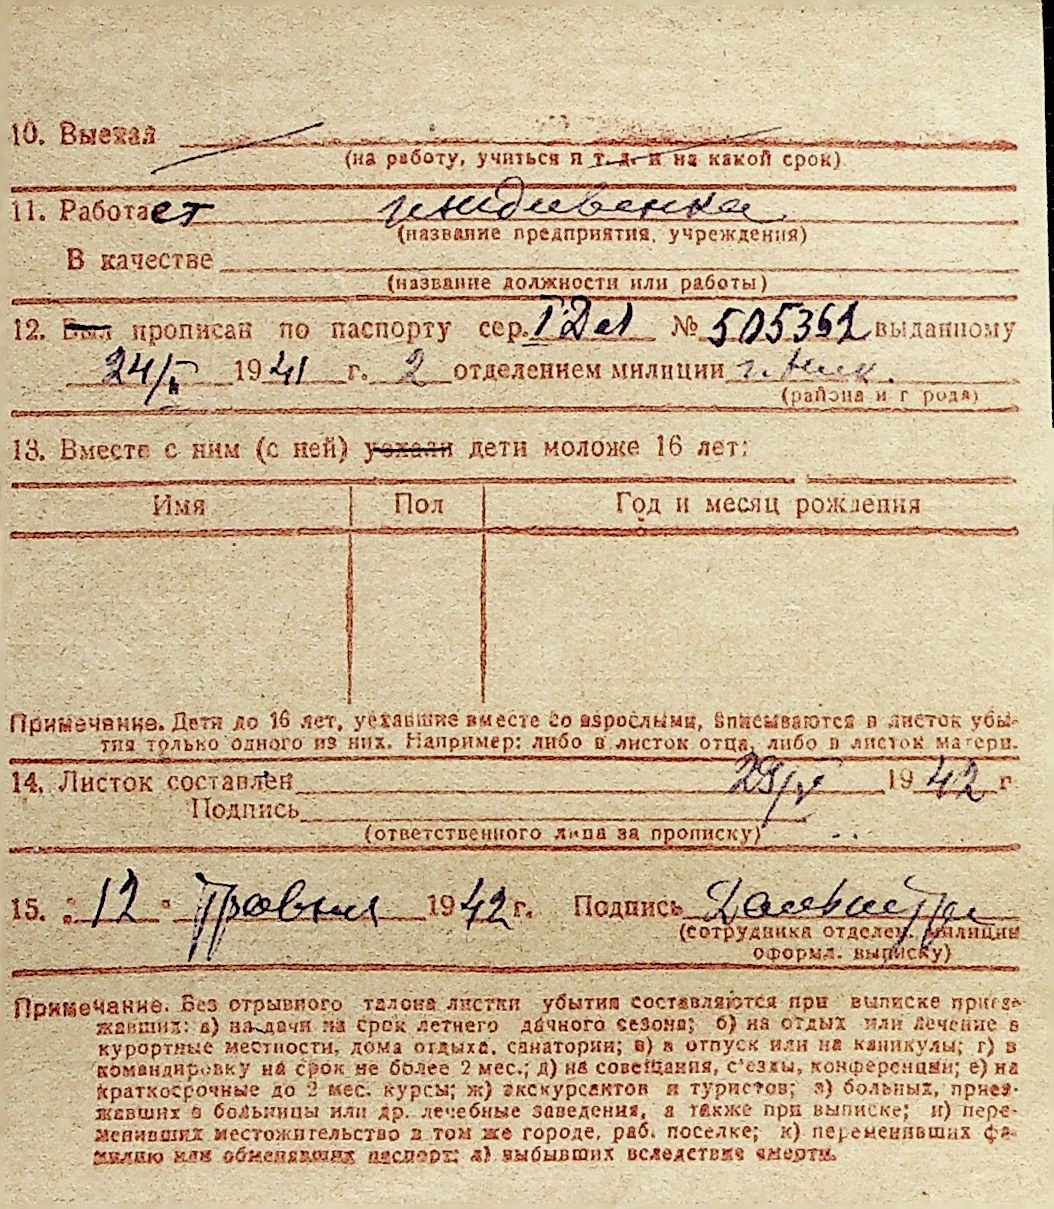 10. Выехал
(на работу, учиться и т. д. и на какой срок)
11. Работает иждивенка
(название предприятия, учреждения)
В качестве
(название должности или работы)
12. Был прописан по паспорту сер. № 505362 выданному
24/ 1941 г. 2 отделением милиции г.
(района и города)
13. Вместе с ним (с ней) уехали дети моложе 16 лет:
Имя Пол Год и месяц рождения
Примечание. Дети до 16 лет, уехавшие вместе со взрослыми, вписываются в листок убы-
тия только одного из них. Например: либо в листок отца, либо в листок матери.
14. Листок составлен 29/V 1942 г
Подпись
(ответственного лица за прописку)
15. "12" травня 1942 г. Подпись
(сотрудника отделен. милиции
оформл. выписку)
Примечание. Без отрывного талона листки убытия составляются при выписке приез-
жавших: а) на дачи на срок летнего дачного сезона; б) на отдых или лечение в
курортные местности, дома отдыха, санатории; в) в отпуск или на каникулы; г) в
командировку на срок не более 2 мес.; д) на совещания, с'езды, конференции; е) на
краткосрочные до 2 мес. курсы; ж) экскурсантов и туристов; з) больных, приез-
жавших в больницы или др. лечебные заведения, а также при выписке; и) пере-
менивших местожительство в том же городе, раб. поселке; к) переменивших фа-
милию или обменявших паспорт; л) выбывших вследствие смерти.